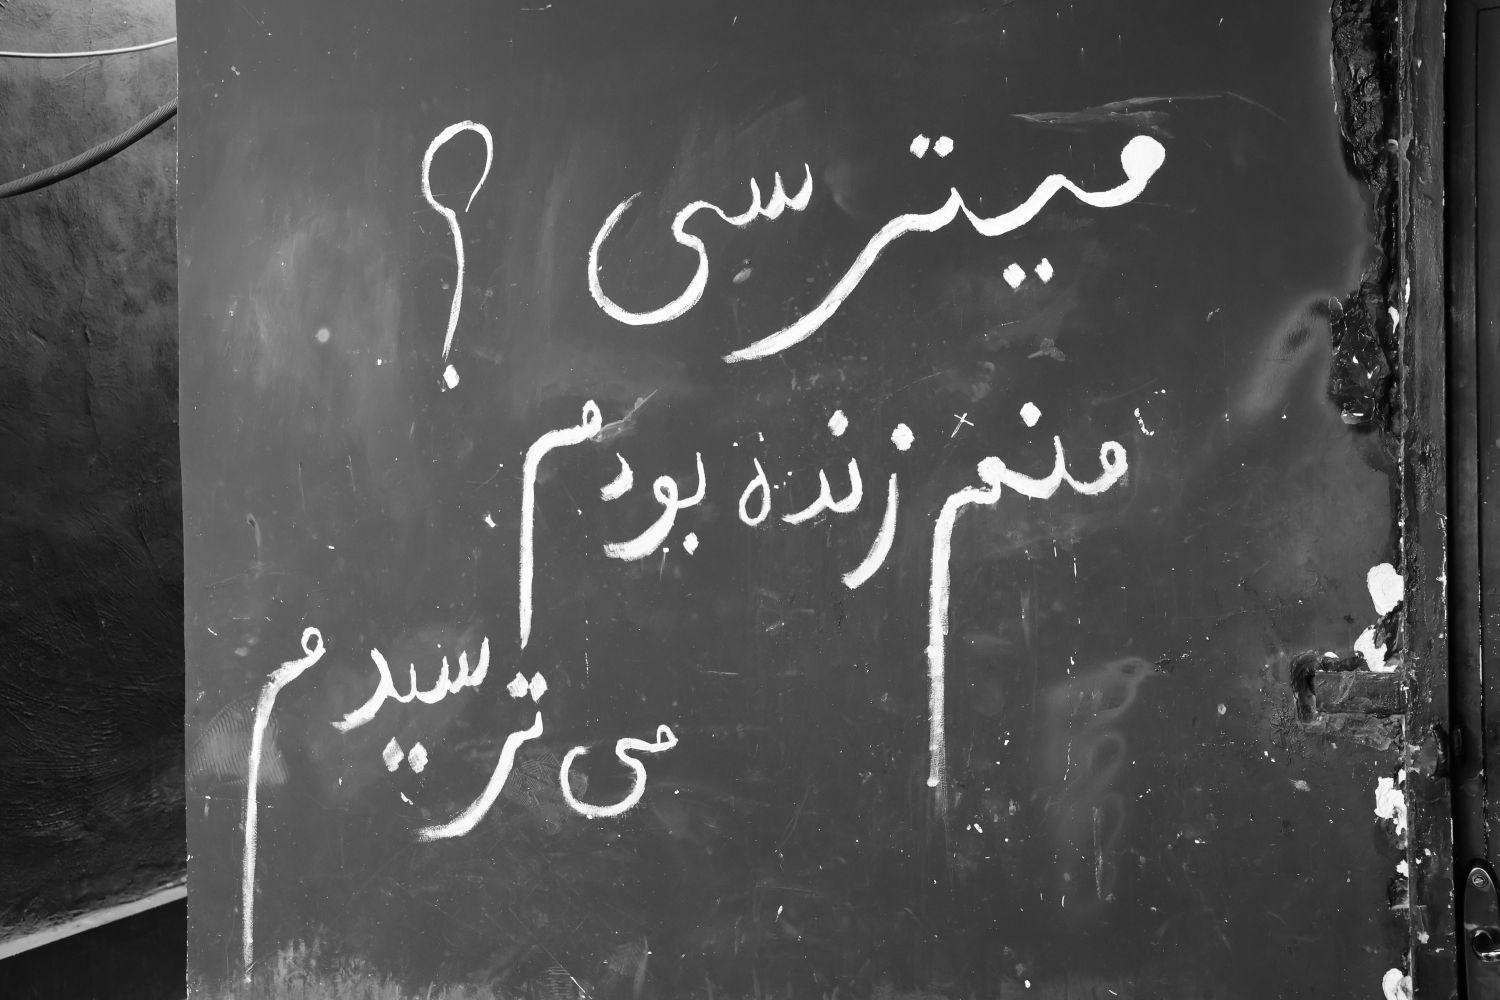 میترسی ؟
منم زنده بودم
می ترسیدم